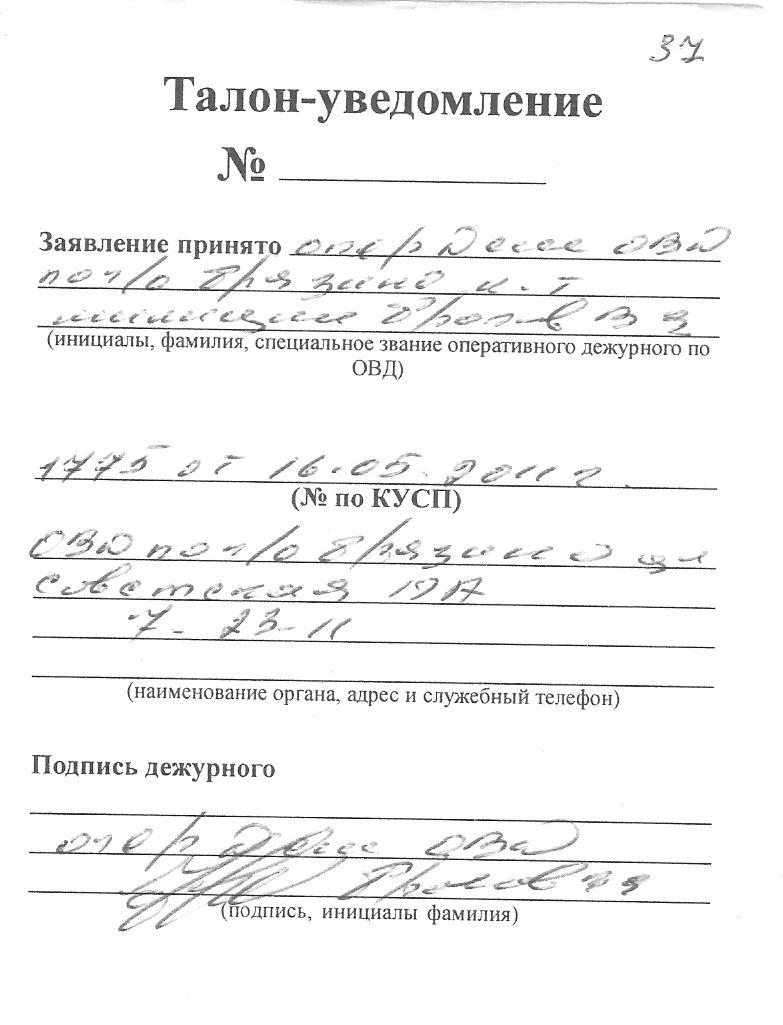 37
Талон-уведомление
№
Заявление принято опер деж ОВД
по г/о Фрязино к-т
милиции Фролов В
(инициалы, фамилия, специальное звание оперативного дежурного по
ОВД)
1775 от 16.05.2011 г.
(№ по КУСП)
ОВД по г/о Фрязино ул
Советская 19А
7-23-11
(наименование органа, адрес и служебный телефон)
Подпись дежурного
опер деж ОВД
Фролов
(подпись, инициалы фамилия)